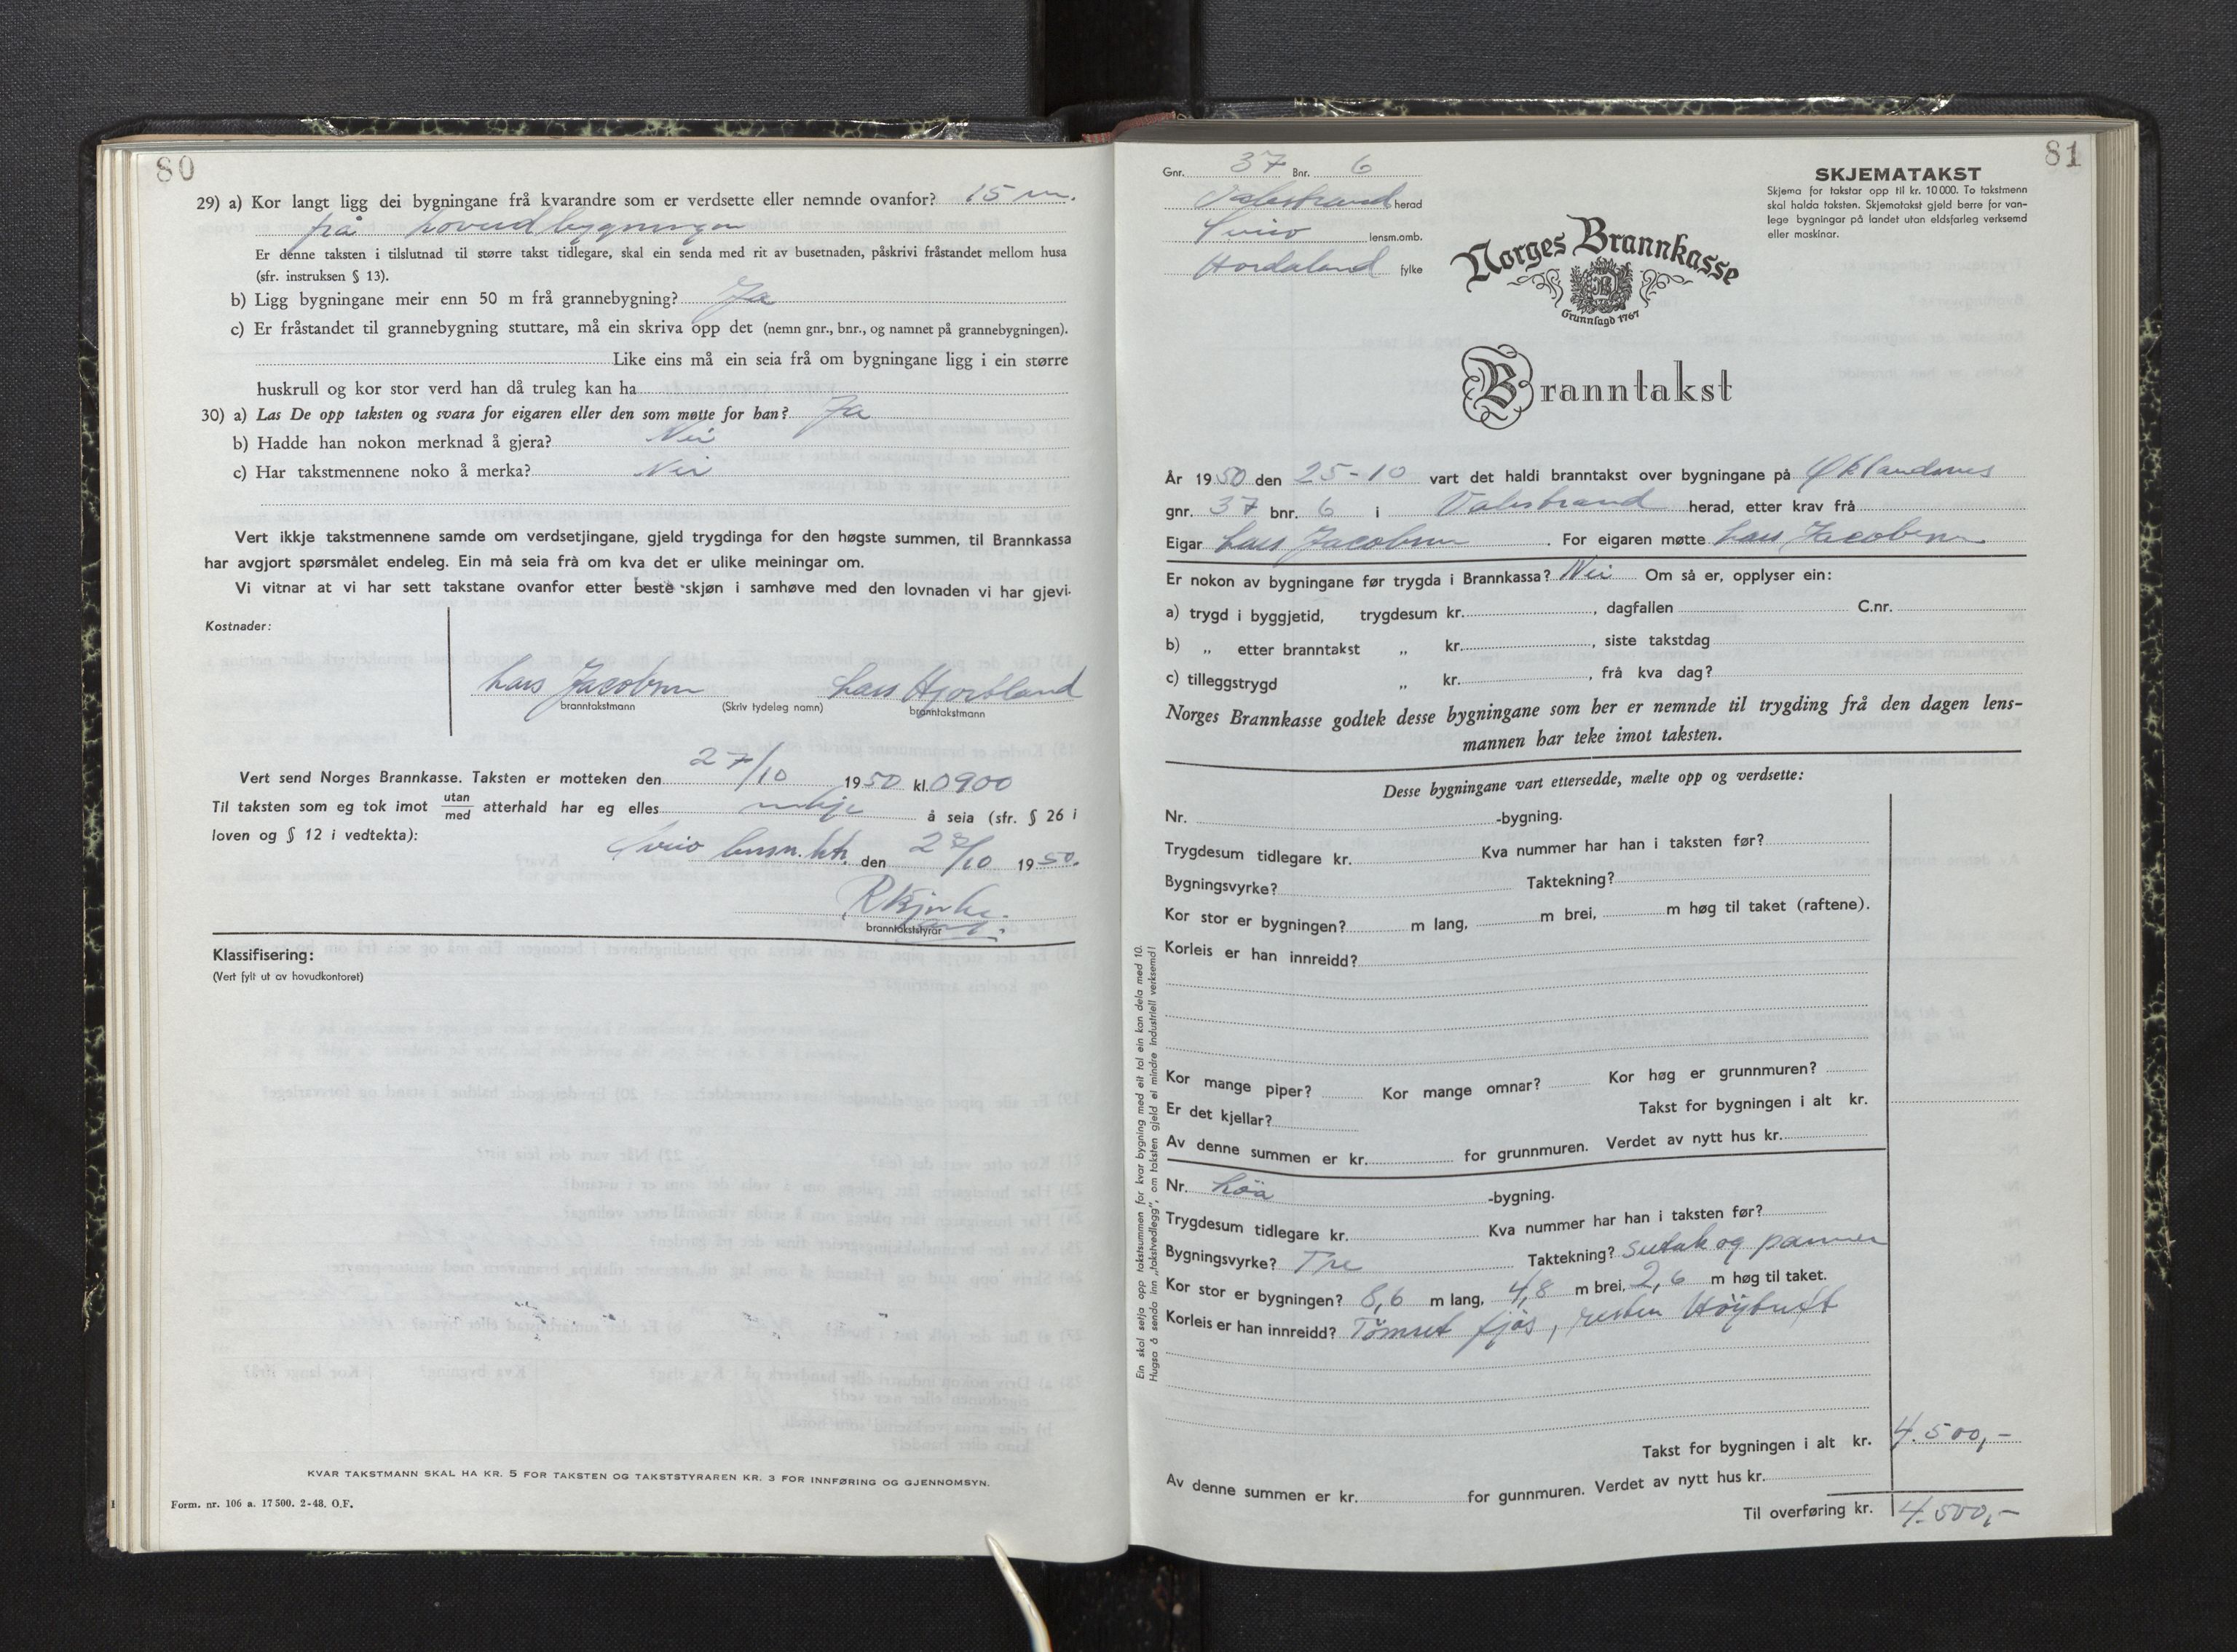 80
29) a) Kor langt ligg dei bygningane frå kvarandre som er verdsette eller nemnde ovanfor? 15 m.
frå hovudbygningen
Er denne taksten i tilslutnad til større takst tidlegare, skal ein senda med rit av busetnaden, påskrivi fråstandet mellom husa
(sfr. instruksen § 13).
b) Ligg bygningane meir enn 50 m frå grannebygning? Ja
c) Er fråstandet til grannebygning stuttare, må ein skriva opp det (nemn gnr., bnr., og namnet på grannebygningen).
Like eins må ein seia frå om bygningane ligg i ein større
huskrull og kor stor verd han då truleg kan ha
30) a) Las De opp taksten og svara for eigaren eller den som møtte for han? Ja
b) Hadde han nokon merknad å gjera? Nei
c) Har takstmennene noko å merka? Nei
Vert ikkje takstmennene samde om verdsetjingane, gjeld trygdinga for den høgste summen, til Brannkassa
har avgjort spørsmålet endeleg. Ein må seia frå om kva det er ulike meiningar om.
Vi vitnar at vi har sett takstane ovanfor etter beste skjøn i samhøve med den lovnaden vi har gjevi.
Kostnader:
Lars Jacobsen Lars Hjortland
branntakstmann (Skriv tydeleg namn) branntakstmann
Vert send Norges Brannkasse. Taksten er motteken den 27/10 1950 kl. 0900
Til taksten som eg tok imot utan/med atterhald har eg elles inkje å seia (sfr. § 26 i
loven og § 12 i vedtekta):
Sveio lensm.ktr. den 27/10 1950.
branntakststyrar
Klassifisering:
(Vert fylt ut av hovudkontoret)
KVAR TAKSTMANN SKAL HA KR. 5 FOR TAKSTEN OG TAKSTSTYRAREN KR. 3 FOR INNFØRING OG GJENNOMSYN.
Form. nr. 106 a. 17 500. 2-48. O.F.
81
Gnr. 37 Bnr. 6
Valestrand herad
Sveio lensm.omb.
Hordaland fylke
SKJEMATAKST
Skjema for takstar opp til kr. 10 000. To takstmenn
skal halda taksten. Skjematakst gjeld berre for van-
lege bygningar på landet utan eldsfarleg verksemd
eller maskinar.
Norges Brannkasse
Grunnlagd 1767
Branntakst
År 1950 den 25-10 vart det haldi branntakst over bygningane på Øklandsnes
gnr. 37 bnr. 6 i Valestrand herad, etter krav frå
Eigar Lars Jacobsen. For eigaren møtte Lars Jacobsen
Er nokon av bygningane før trygda i Brannkassa? Nei Om så er, opplyser ein:
a) trygd i byggjetid, trygdesum kr. , dagfallen C.nr.
b) „ etter branntakst „ kr. , siste takstdag
c) tilleggstrygd „ kr. , frå kva dag?
Norges Brannkasse godtek desse bygningane som her er nemnde til trygding frå den dagen lens-
mannen har teke imot taksten.
Desse bygningane vart ettersedde, mælte opp og verdsette:
Nr. -bygning.
Trygdesum tidlegare kr. Kva nummer har han i taksten før?
Bygningsvyrke? Taktekning?
Kor stor er bygningen? m lang, m brei, m høg til taket (raftene).
Korleis er han innreidd?
Kor mange piper? Kor mange omnar? Kor høg er grunnmuren?
Er det kjellar? Takst for bygningen i alt kr.
Av denne summen er kr. for grunnmuren. Verdet av nytt hus kr.
Nr. Löa -bygning.
Trygdesum tidlegare kr. Kva nummer har han i taksten før?
Bygningsvyrke? Tre Taktekning? sutak og panner
Kor stor er bygningen? 8,6 m lang, 4,8 m brei, 2,6 m høg til taket.
Korleis er han innreidd? Tömret fjös, resten Höy
Takst for bygningen i alt kr. 4.500,-
Av denne summen er kr. for gunnmuren. Verdet av nytt hus kr.
Til overføring kr. 4.500,-
Ein skal setja opp takstsummen for kvar bygning med eit tal ein kan dela med 10.
Hugsa å senda inn „takstvedlegg", om taksten gjeld ei mindre industriell verksemd!